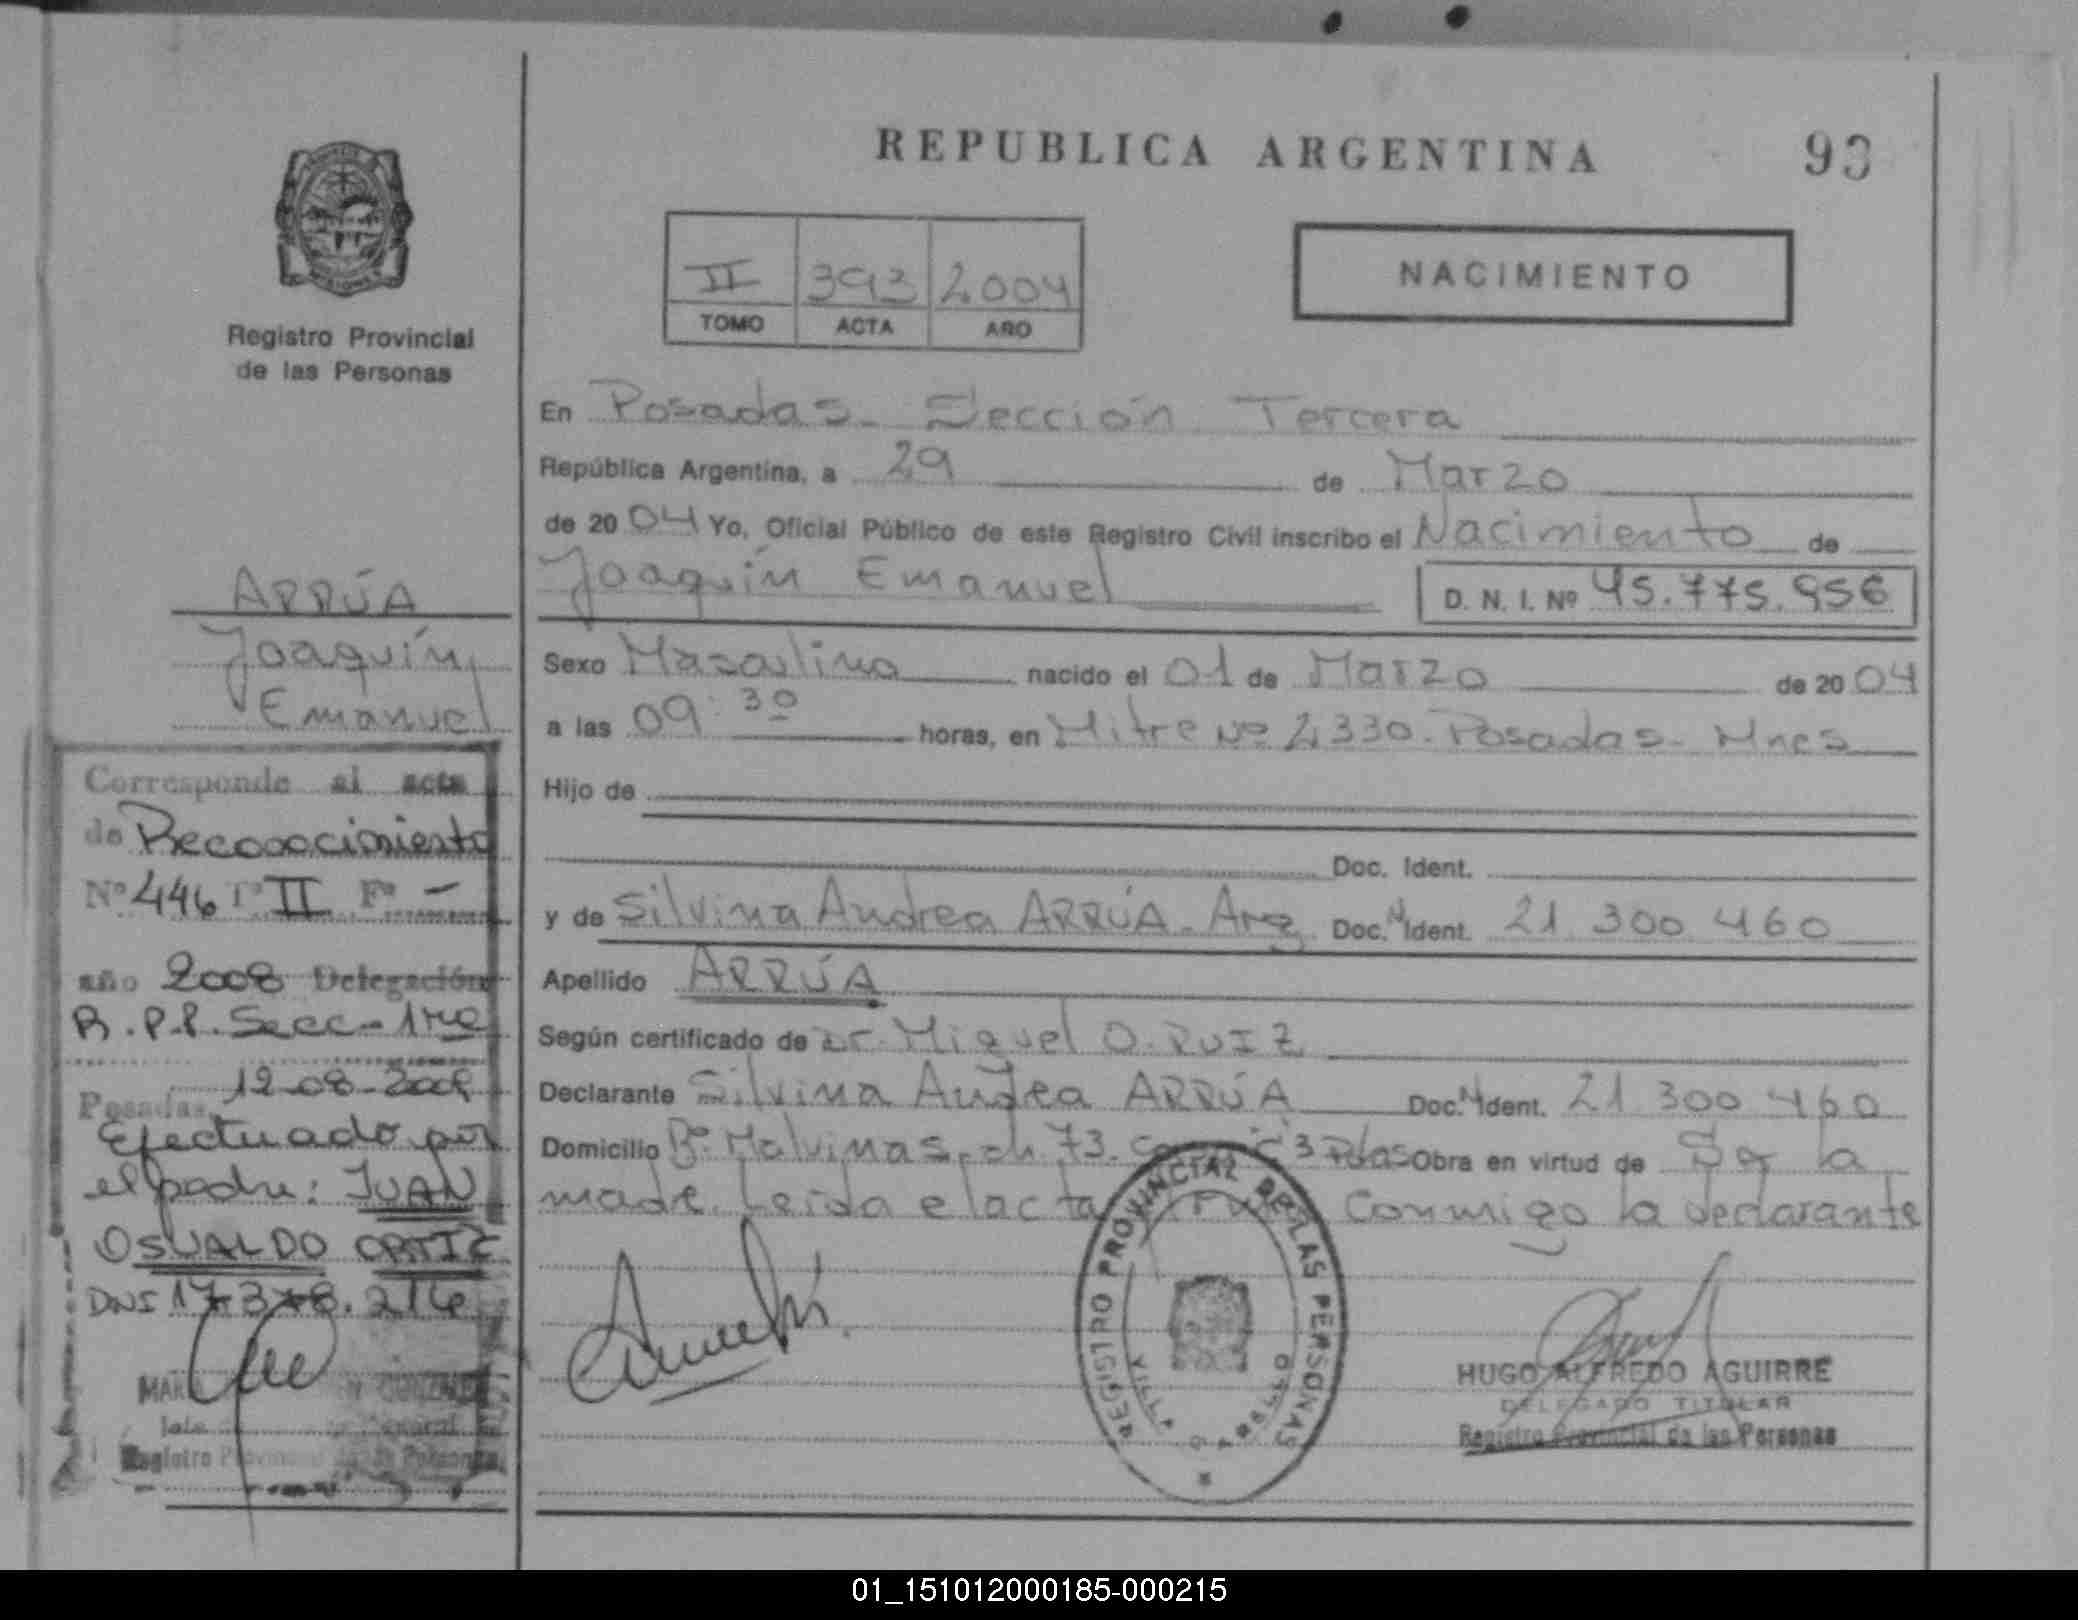 REPUBLICA ARGENTINA
93
II 393 2004
TOMO ACTA AÑO
NACIMIENTO
Registro Provincial
de las Personas
ARRÚA
Joaquín
Emanuel
Corresponde al acta
de Reconocimiento
Nº 446 Tº II Fº -
año 2008 Delegación
R.P.P. Secc-1ra
Posadas, 12-08-2008
Efectuado por
el padre: JUAN
OSVALDO ORTIZ
DNI 17.378.214
Registro Provincial de las Personas
En Posadas - Sección Tercera
República Argentina, a 29 de Marzo
de 2004 Yo, Oficial Público de este Registro Civil inscribo el Nacimiento de
Joaquín Emanuel D. N. I. Nº 45.775.956
Sexo Masculino nacido el 01 de Marzo de 2004
a las 09:30 horas, en Mitre Nº 2330. Posadas- Mnes
Hijo de
Doc. Ident.
y de Silvina Andrea ARRÚA. Arg. Doc. N Ident. 21.300.460
Apellido ARRÚA
Según certificado de Dr. Miguel O. RUIZ
Declarante Silvina Andrea ARRÚA Doc. N Ident. 21.300.460
Domicilio Bº Malvinas, ch 73. C3 Pdas Obra en virtud de Sq la
madre. Leída el acta Conmigo la declarante
REGISTRO PROVINCIAL DE LAS PERSONAS
VILLA
HUGO ALFREDO AGUIRRE
DELEGADO TITULAR
Registro Provincial de las Personas
01_151012000185-000215